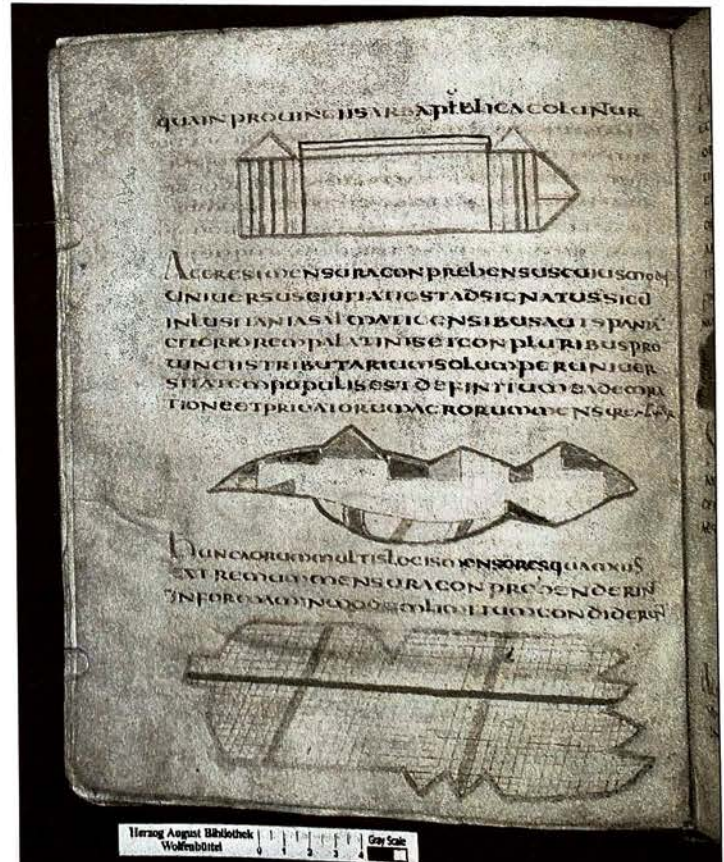 QUAIN PROUINCIIS ARBA PUBLICA COLUNTUR
AGERESTMENSURACONPREHENSUSCUIUSMOD
UNIUERSUSCIUITATIESTADSIGNATUSSICU
INLUSITANIASALMATICENSIBUSAUTSPANIA
CITERIOREMPALATINISETCONPLURIBUSPRO
UINCIISTRIBUTARIUMSOLUMPERUNIUER
SITATEMPOPULISESTDEFINITUMEADEMRA
TIONEETPRIUATORUMAGRORUMMENS
HUNCAGRUMMULTISLOCISMENSORESQUAMUIS
EXTREMUMMENSURACONPREHENDERIN
INFORMAMINMODUMLIMITUMCONDIDERUN
Herzog August Bibliothek
Wolfenbüttel
0 1 2 3 4
Gray Scale